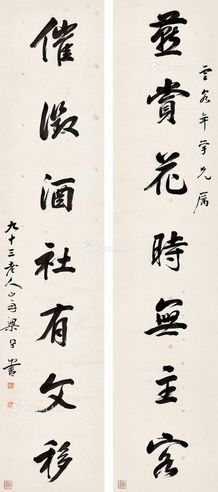 雲谷年學兄属
燕賞花時無主客
催徵酒社有文移
九十三老人山舟梁同書